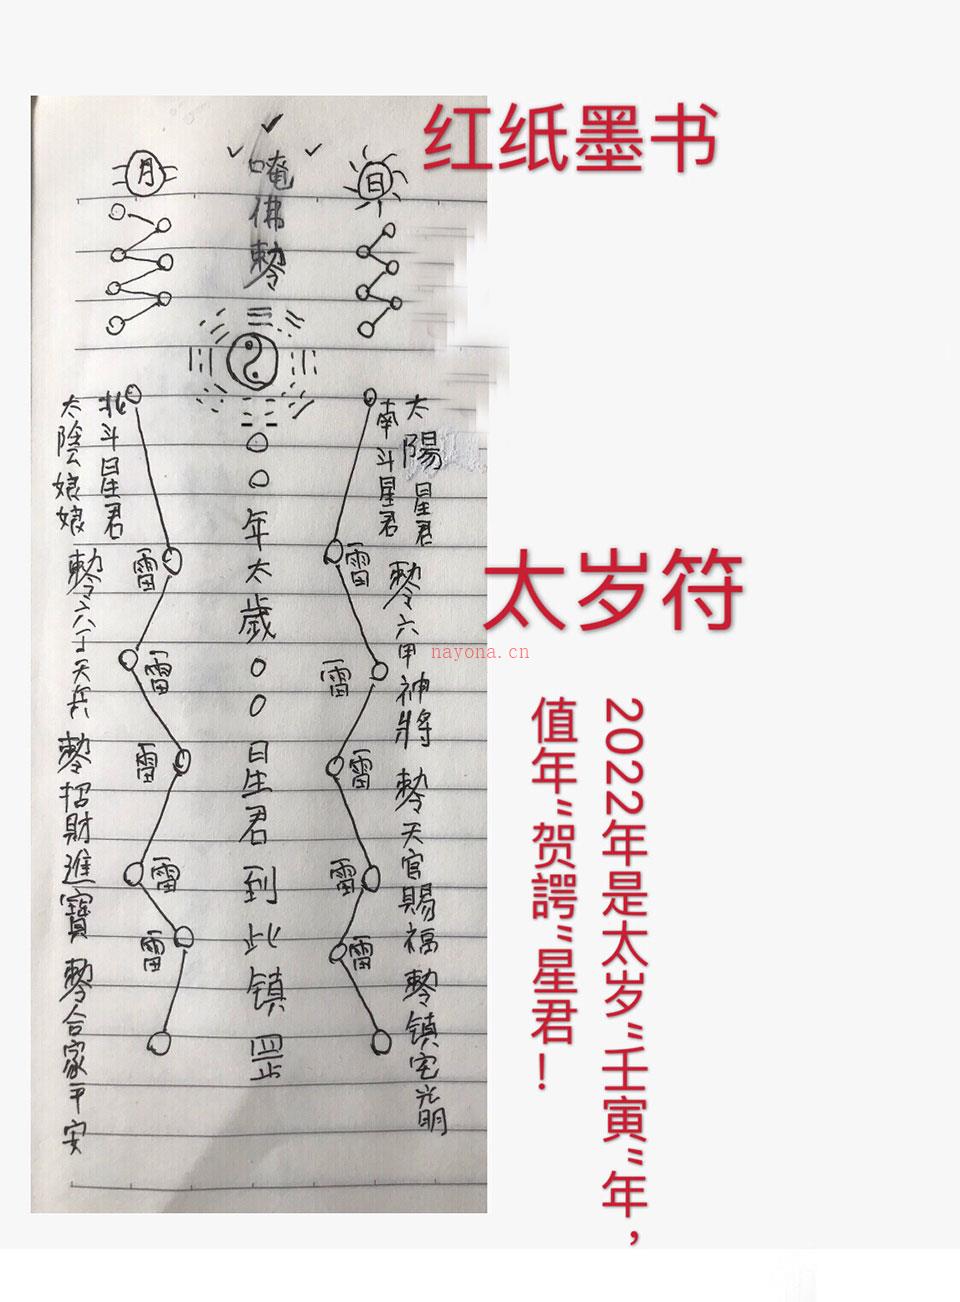 红纸墨书
太岁符
2022年是太岁“壬寅”年，
值年“贺諤”星君！
nayona.cn
唵佛勅令
〇〇年太歲〇〇星君到此镇罡
日
太陽星君 勅令六甲神將 勅令天官賜福 勅令镇宅光明
南斗星君
雷
雷
雷
雷
雷
月
北斗星君
太陰娘娘 勅令六丁天兵 勅令招財進寶 勅令合家平安
雷
雷
雷
雷
雷